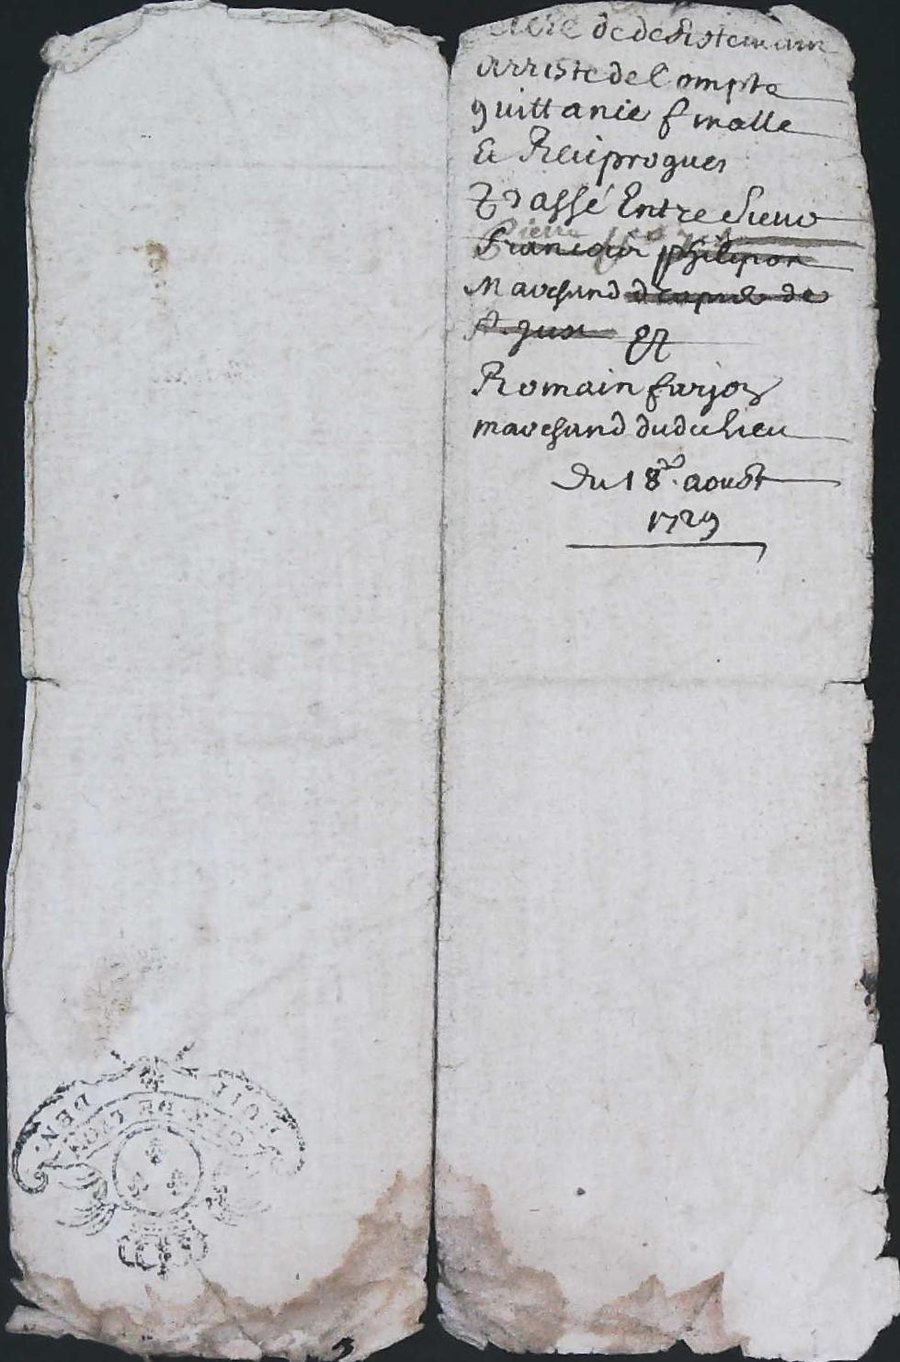 Acte de desistement
arreste de Compte
quittance finalle
Et Reciproques
Passé Entre sieur
Pierre
Francois philipon
Marchand drapier de
St. Just Et
Romain farjon
marchand dudit lieu
Du 18e. aoust
1729
GEN. DE LYON
DEN.